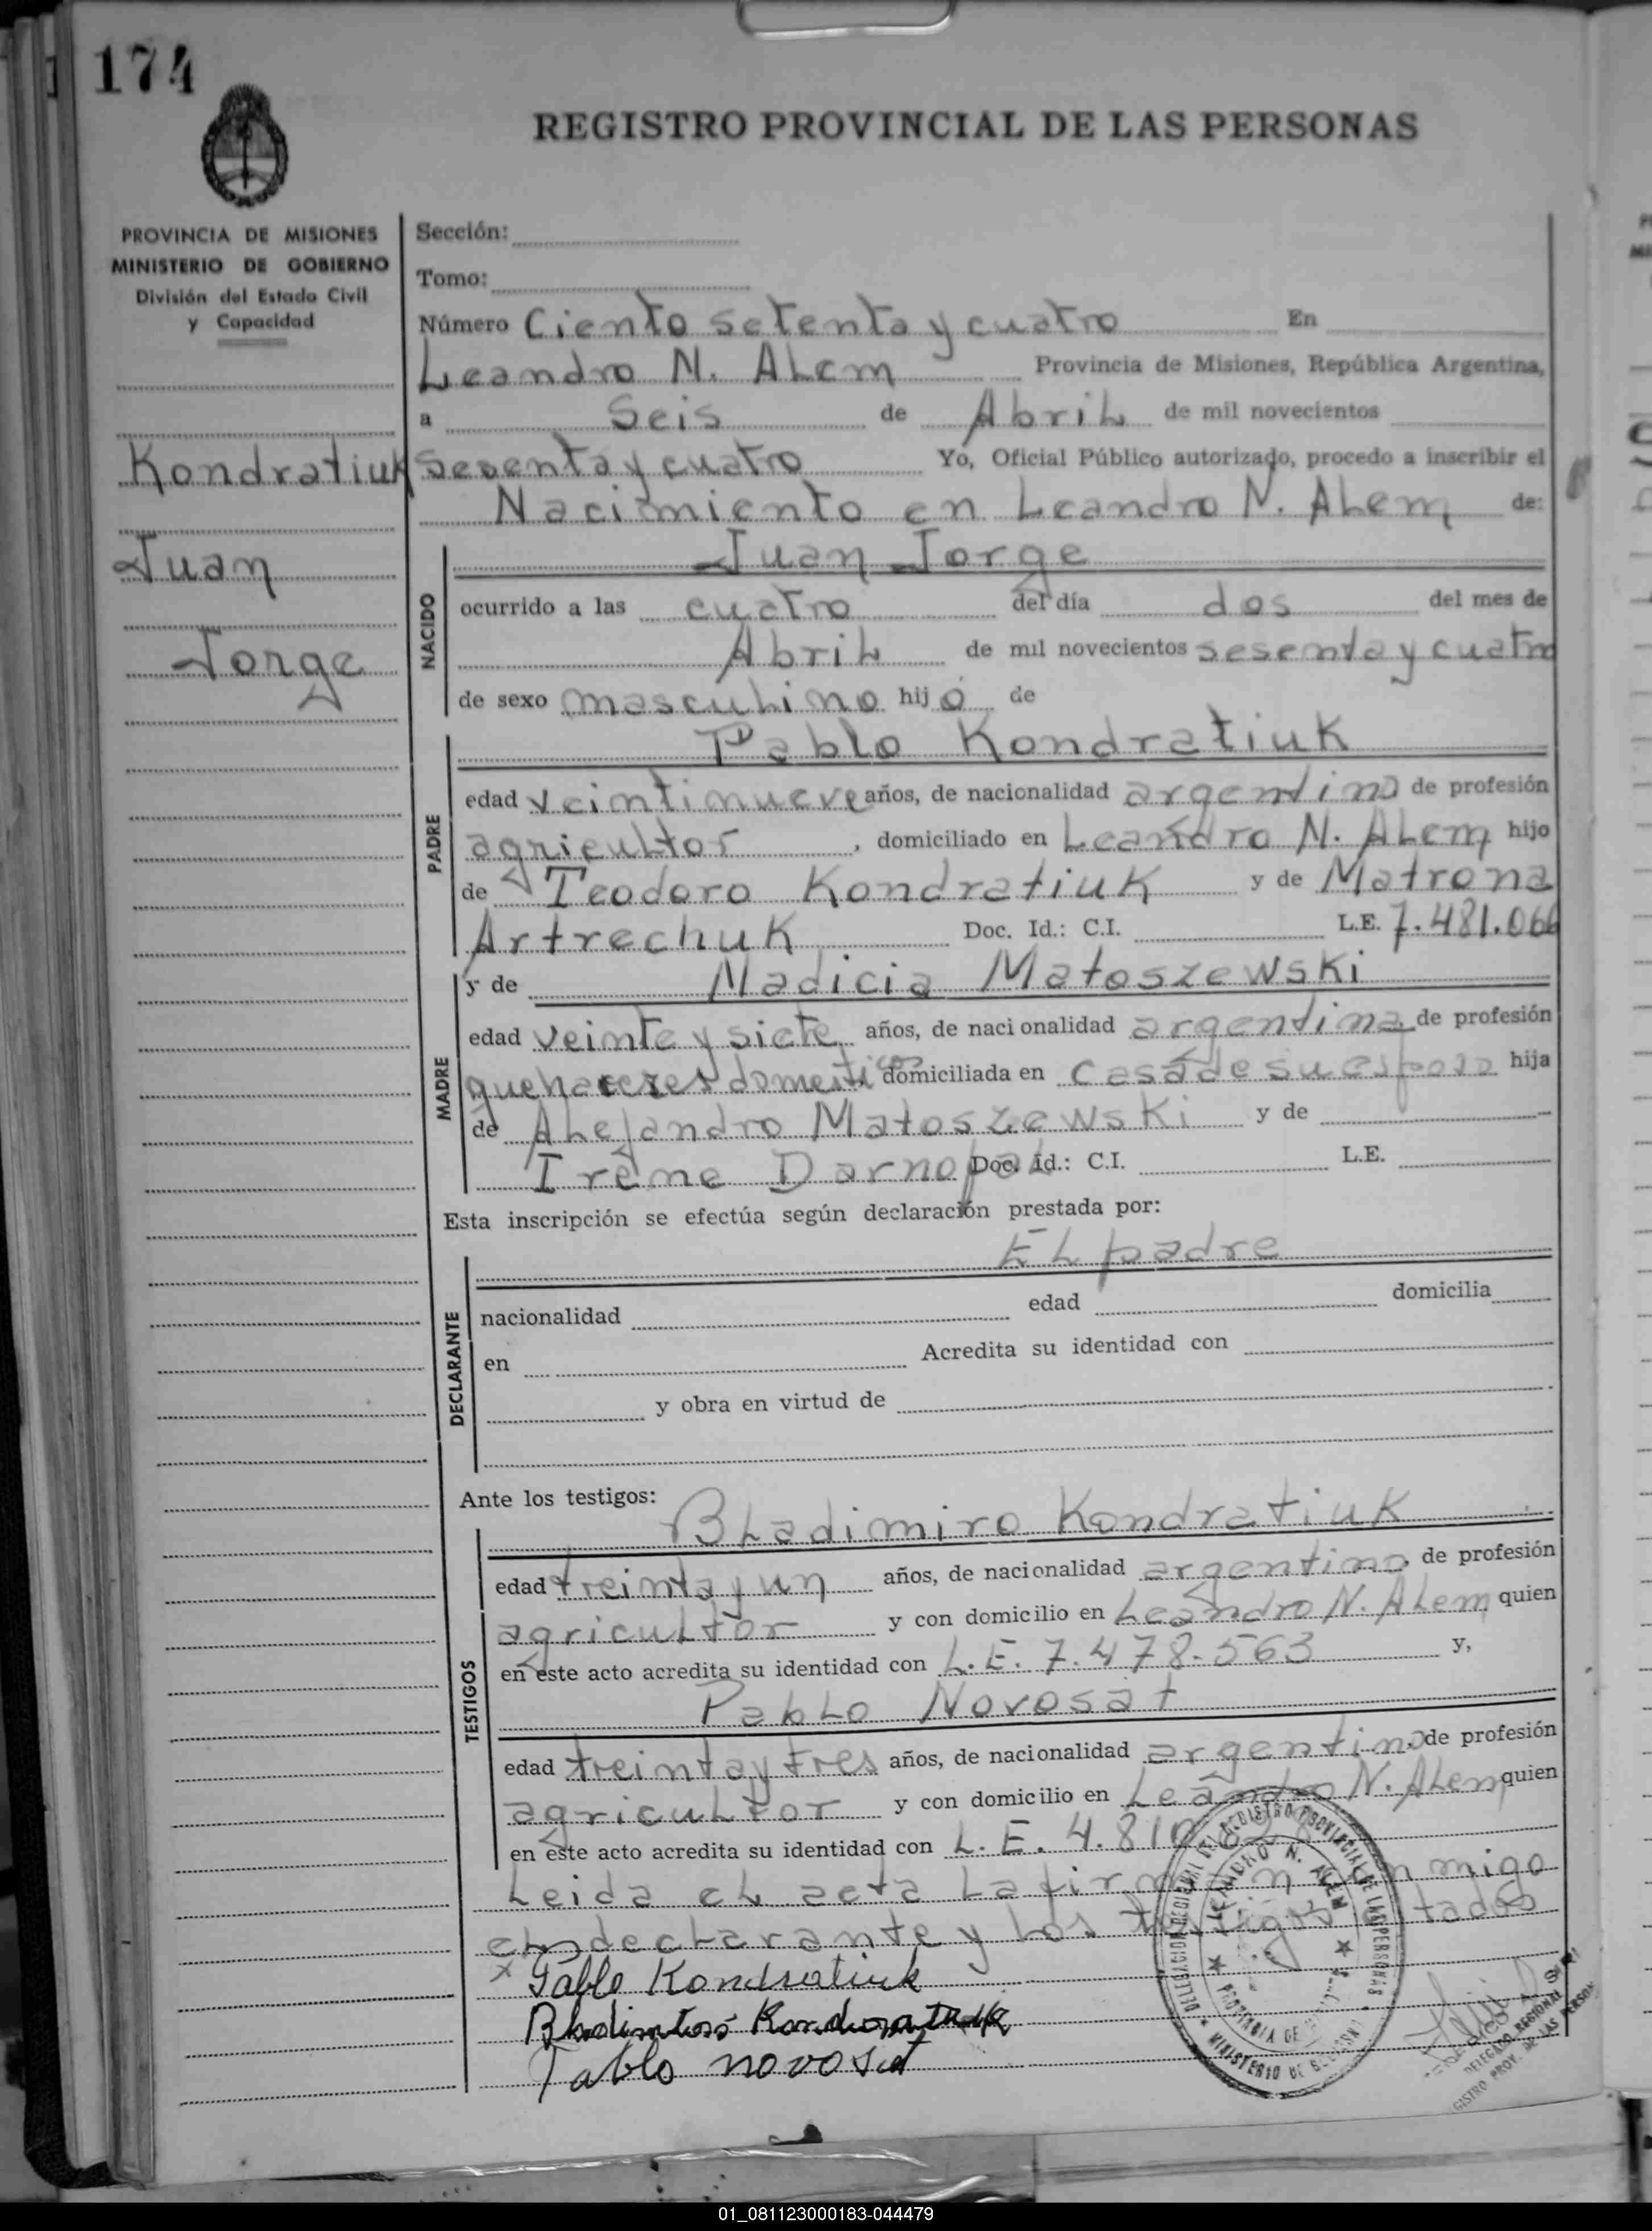 174
REGISTRO PROVINCIAL DE LAS PERSONAS
PROVINCIA DE MISIONES
MINISTERIO DE GOBIERNO
División del Estado Civil
y Capacidad
Kondratiuk
Juan
Jorge
Sección:
Tomo:
Número Ciento setenta y cuatro En
Leandro N. Alem Provincia de Misiones, República Argentina,
a Seis de Abril de mil novecientos
sesenta y cuatro Yo, Oficial Público autorizado, procedo a inscribir el
Nacimiento en Leandro N. Alem de:
NACIDO
Juan Jorge
ocurrido a las cuatro del día dos del mes de
Abril de mil novecientos sesenta y cuatro
de sexo masculino hijo de
PADRE
Pablo Kondratiuk
edad veintinueve años, de nacionalidad argentino de profesión
agricultor, domiciliado en Leandro N. Alem hijo
de Teodoro Kondratiuk y de Matrona
Artrechuk Doc. Id.: C.I. L.E. 7.481.066
MADRE
y de Madicia Matoszewski
edad veinte y siete años, de nacionalidad argentina de profesión
quehaceres domesticos domiciliada en casa de su esposo hija
de Alejandro Matoszewski y de
Irene Darnopol Doc. Id.: C.I. L.E.
Esta inscripción se efectúa según declaración prestada por:
DECLARANTE
El padre
nacionalidad edad domicilia
en Acredita su identidad con
y obra en virtud de
Ante los testigos:
TESTIGOS
Bladimiro Kondratiuk
edad treinta y un años, de nacionalidad argentino, de profesión
agricultor y con domicilio en Leandro N. Alem quien
en este acto acredita su identidad con L.E. 7.478.563 y,
Pablo Novosat
edad treinta y tres años, de nacionalidad argentino, de profesión
agricultor y con domicilio en Leandro N. Alem quien
en este acto acredita su identidad con L.E. 4.810
Leida el acta la firman conmigo
el declarante y los testigos citados
x Pablo Kondratiuk
Kondratiuk
Pablo novosat
DELEGACION REGIONAL DEL REGISTRO PROVINCIAL DE LAS PERSONAS
LEANDRO N. ALEM
PROVINCIA DE
MINISTERIO DE GOBIERNO
DELEGADO REGIONAL
GISTRO PROV. DE LAS PERSON
01_081123000183-044479